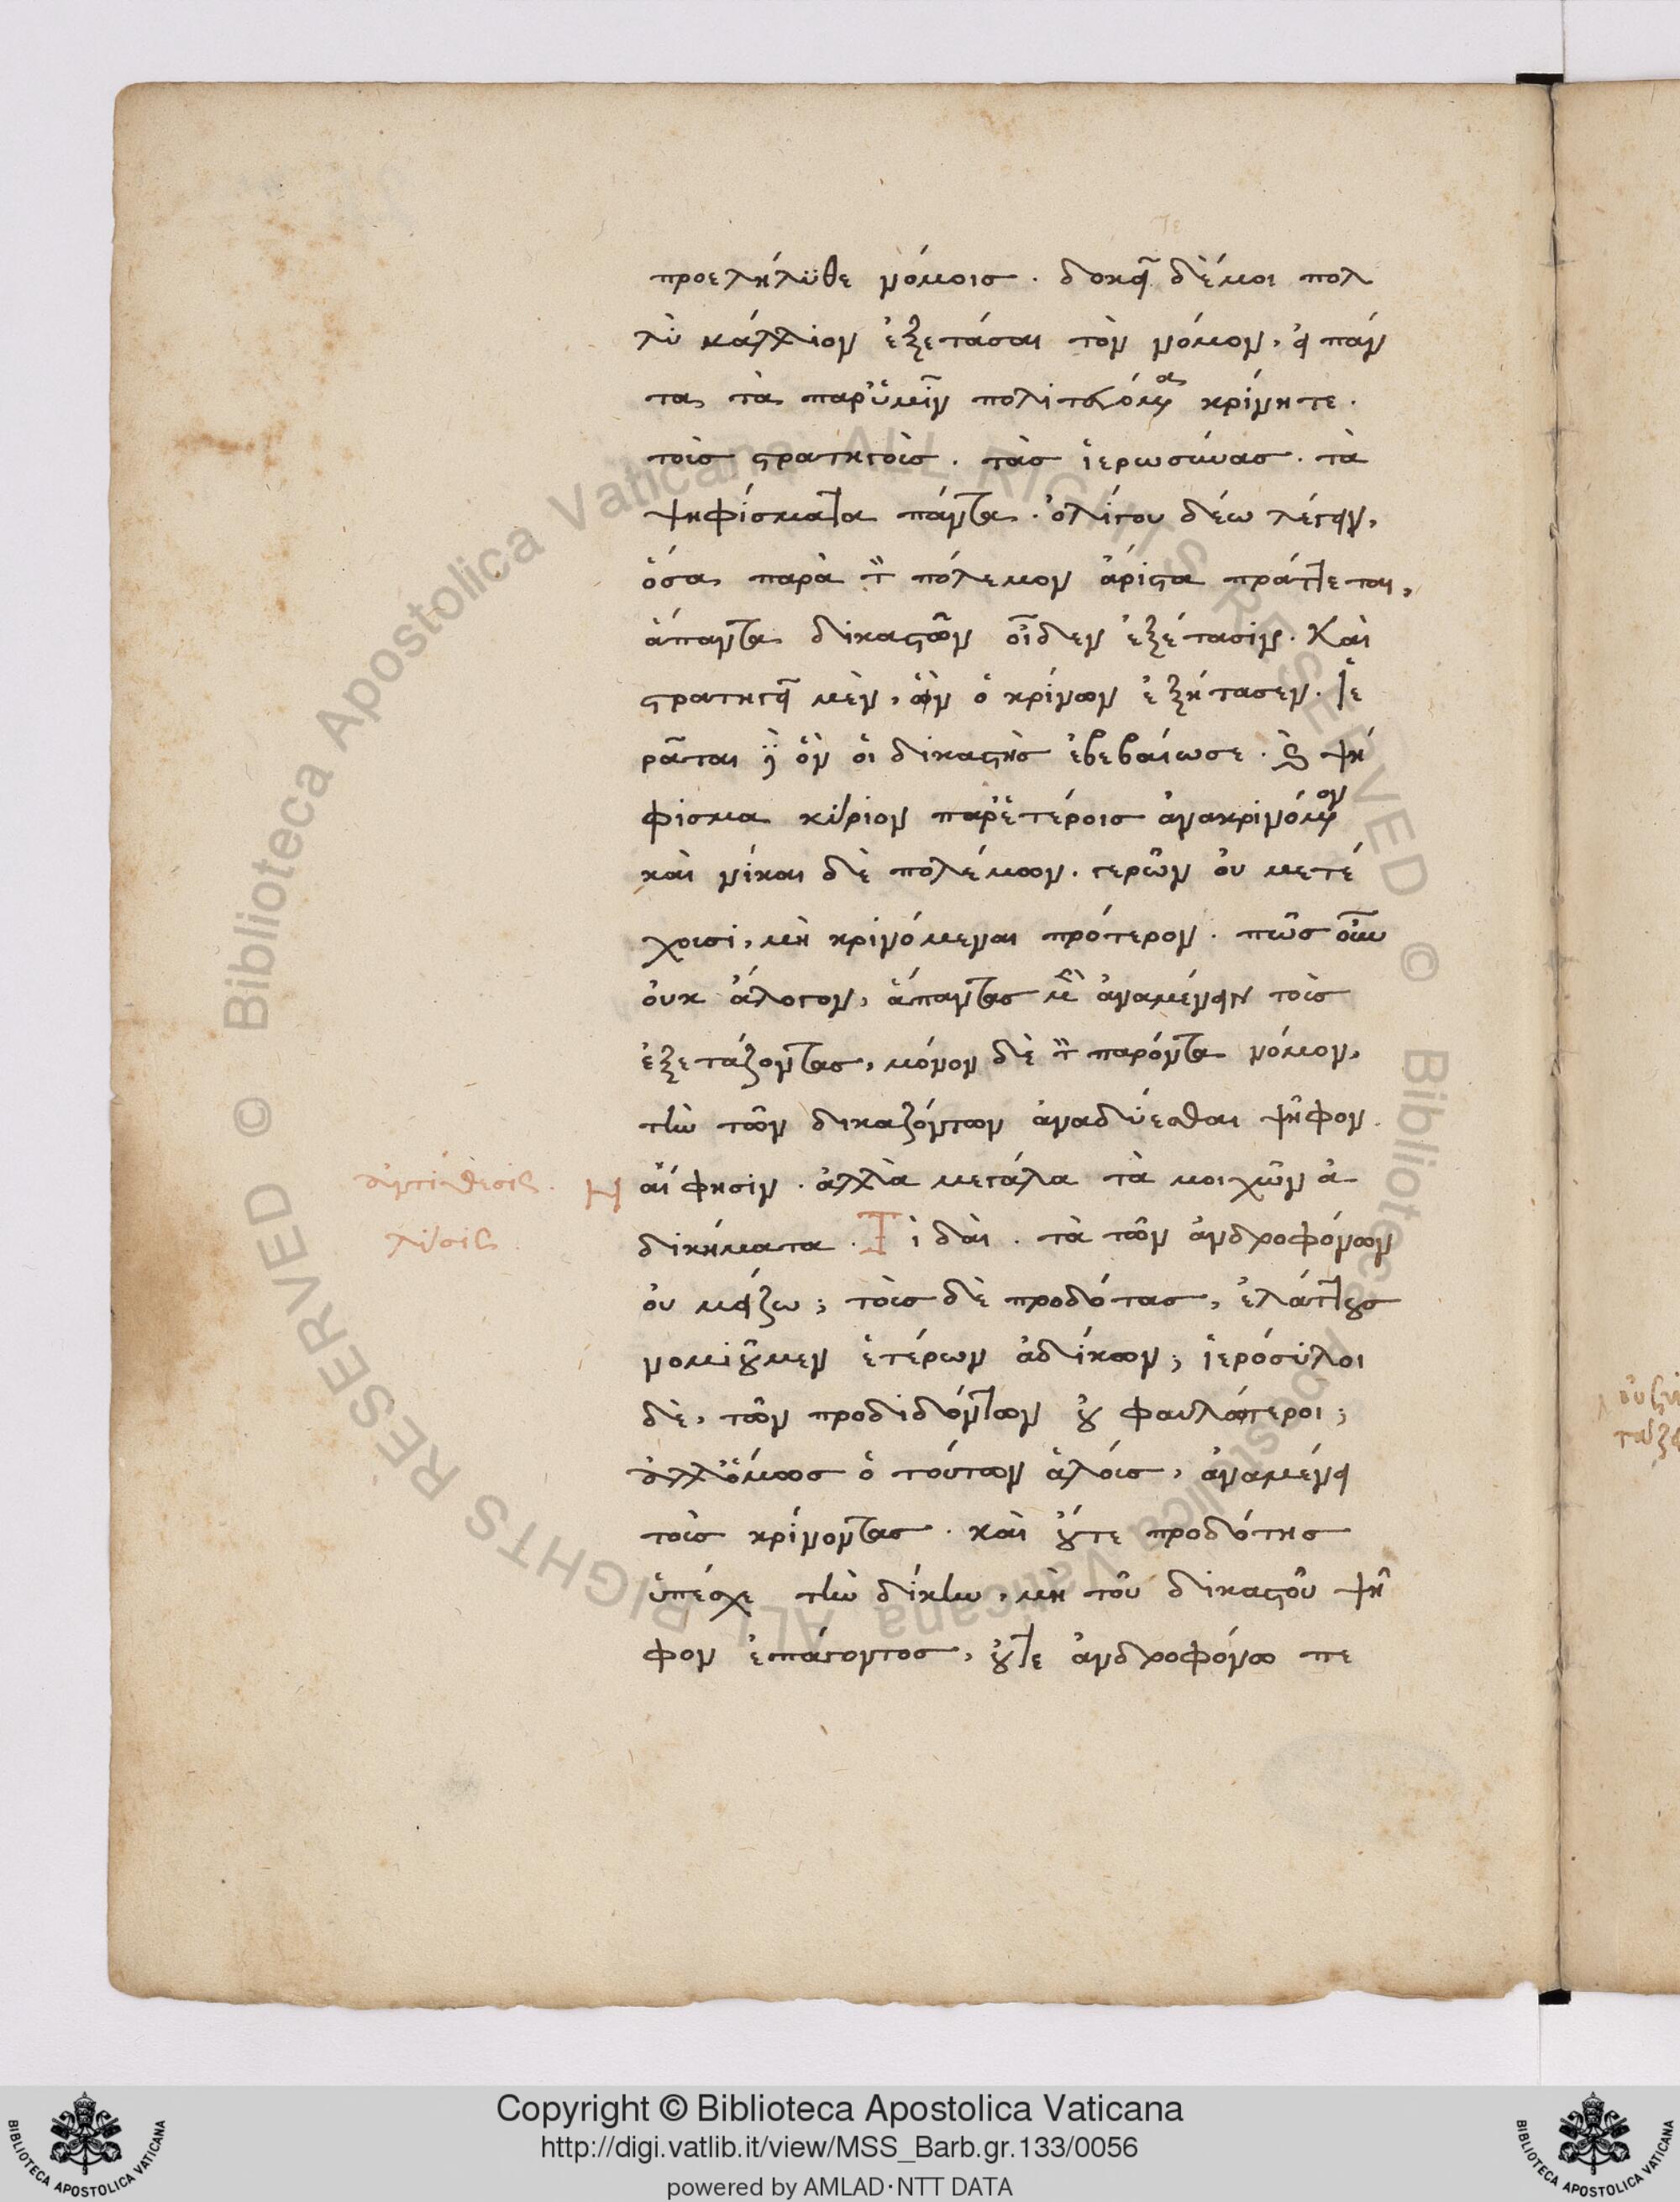 προεληλύθε νόμοις. δοκεῖ δέ μοι πολ
λὺ κάλλιον ἐξετάσαι τὸν νόμον, εἰ πάν
τα τὰ παρ' ὑμῖν πολιτευόμενα κρίνητε.
τοὺς στρατηγοὺς. τὰς ἱερωσύνας. τὰ
ψηφίσματα πάντα. ὀλίγου δέω λέγειν,
ὅσα παρὰ τὸν πόλεμον ἄριστα πράττεται,
ἅπαντα δικαστῶν οἶδεν ἐξέτασιν. Καὶ
στρατηγεῖ μὲν, ὃν ὁ κρίνων ἐξήτασεν. Ἱε
ρᾶται δὲ ὃν ὁ δικαστὴς ἐβεβαίωσε. καὶ ψή
φισμα κύριον παρ' ἑτέροις ἀνακρινόμενον
καὶ νίκαι δὲ πολέμων. γερῶν οὐ μετέ
χουσι, μὴ κρινόμεναι πρότερον. πῶς οὖν
οὐκ ἄλογον, ἅπαντας μὲν ἀναμένειν τοὺς
ἐξετάζοντας, μόνον δὲ τὸν παρόντα νόμον,
τὴν τῶν δικαζόντων ἀναδύεσθαι ψῆφον.
ἀντίθεσις. Ναί φησιν. ἀλλὰ μεγάλα τὰ μοιχῶν ἀ
λύσις δικήματα. Τί δαί. τὰ τῶν ἀνδροφόνων
οὐ μείζω; τοὺς δὲ προδότας, ἐλάττους
νομιοῦμεν ἑτέρων ἀδίκων; ἱερόσυλοι
δὲ, τῶν προδιδόντων οὐ φαυλότεροι;
ἀλλ' ὅμως ὁ τούτων ἁλοὺς, ἀναμένει
τοὺς κρίνοντας. καὶ οὔτε προδότης
ὑπέσχε τὴν δίκην, μὴ τοῦ δικαστοῦ ψῆ
φον ἐπάγοντος, οὔτε ἀνδροφόνω πε
Copyright © Biblioteca Apostolica Vaticana
http://digi.vatlib.it/view/MSS_Barb.gr.133/0056
powered by AMLAD·NTT DATA